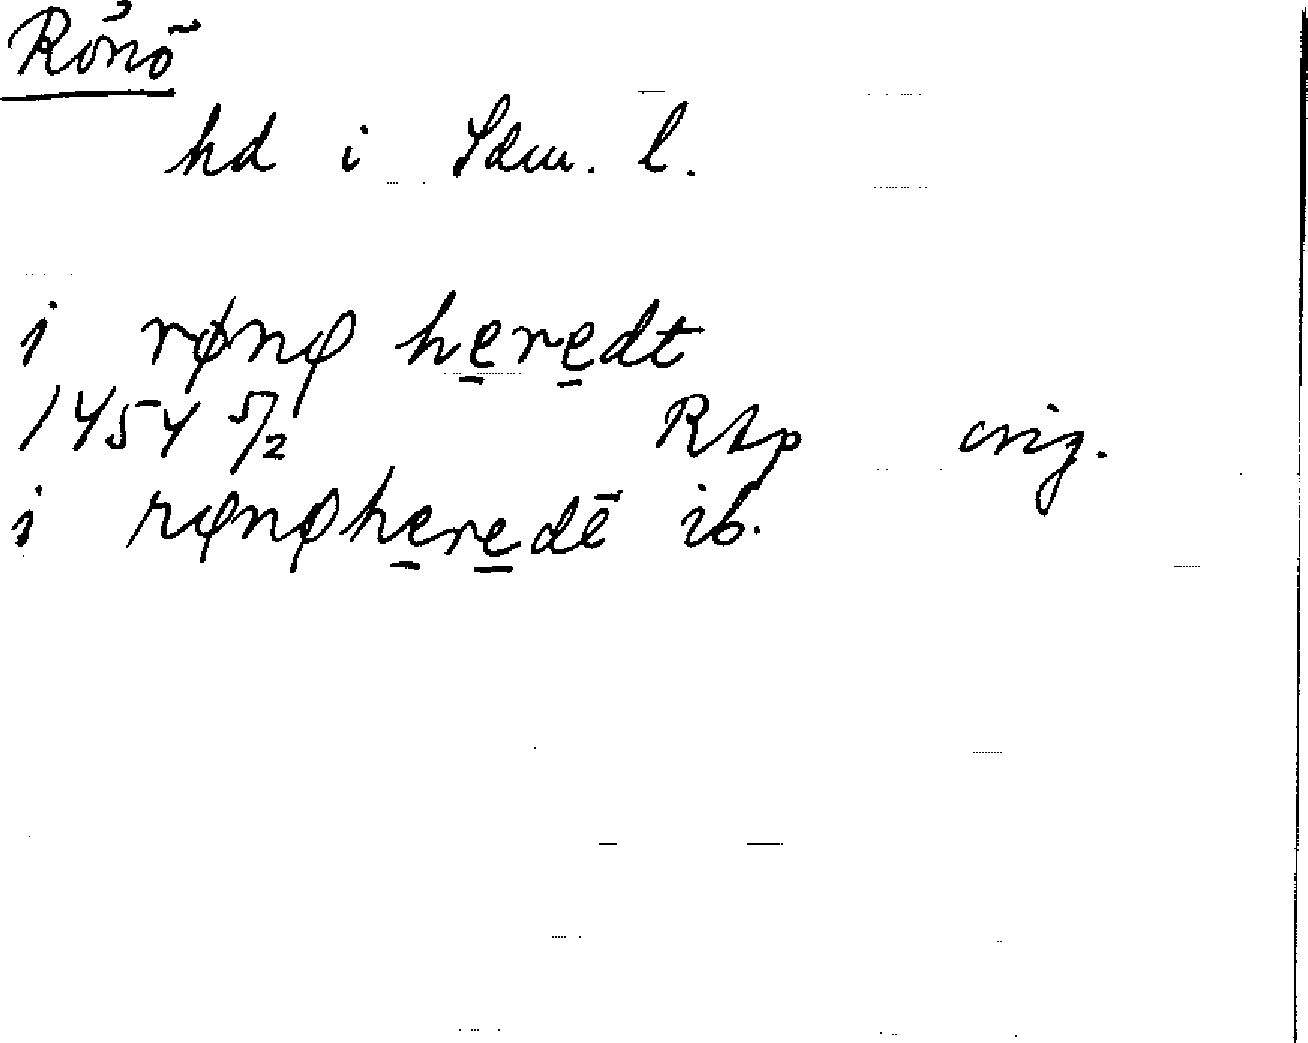 Rönö
hd i Sdm. l.
i rønø heredt
1454 5/2 RAp orig.
i rønøheredē ib.